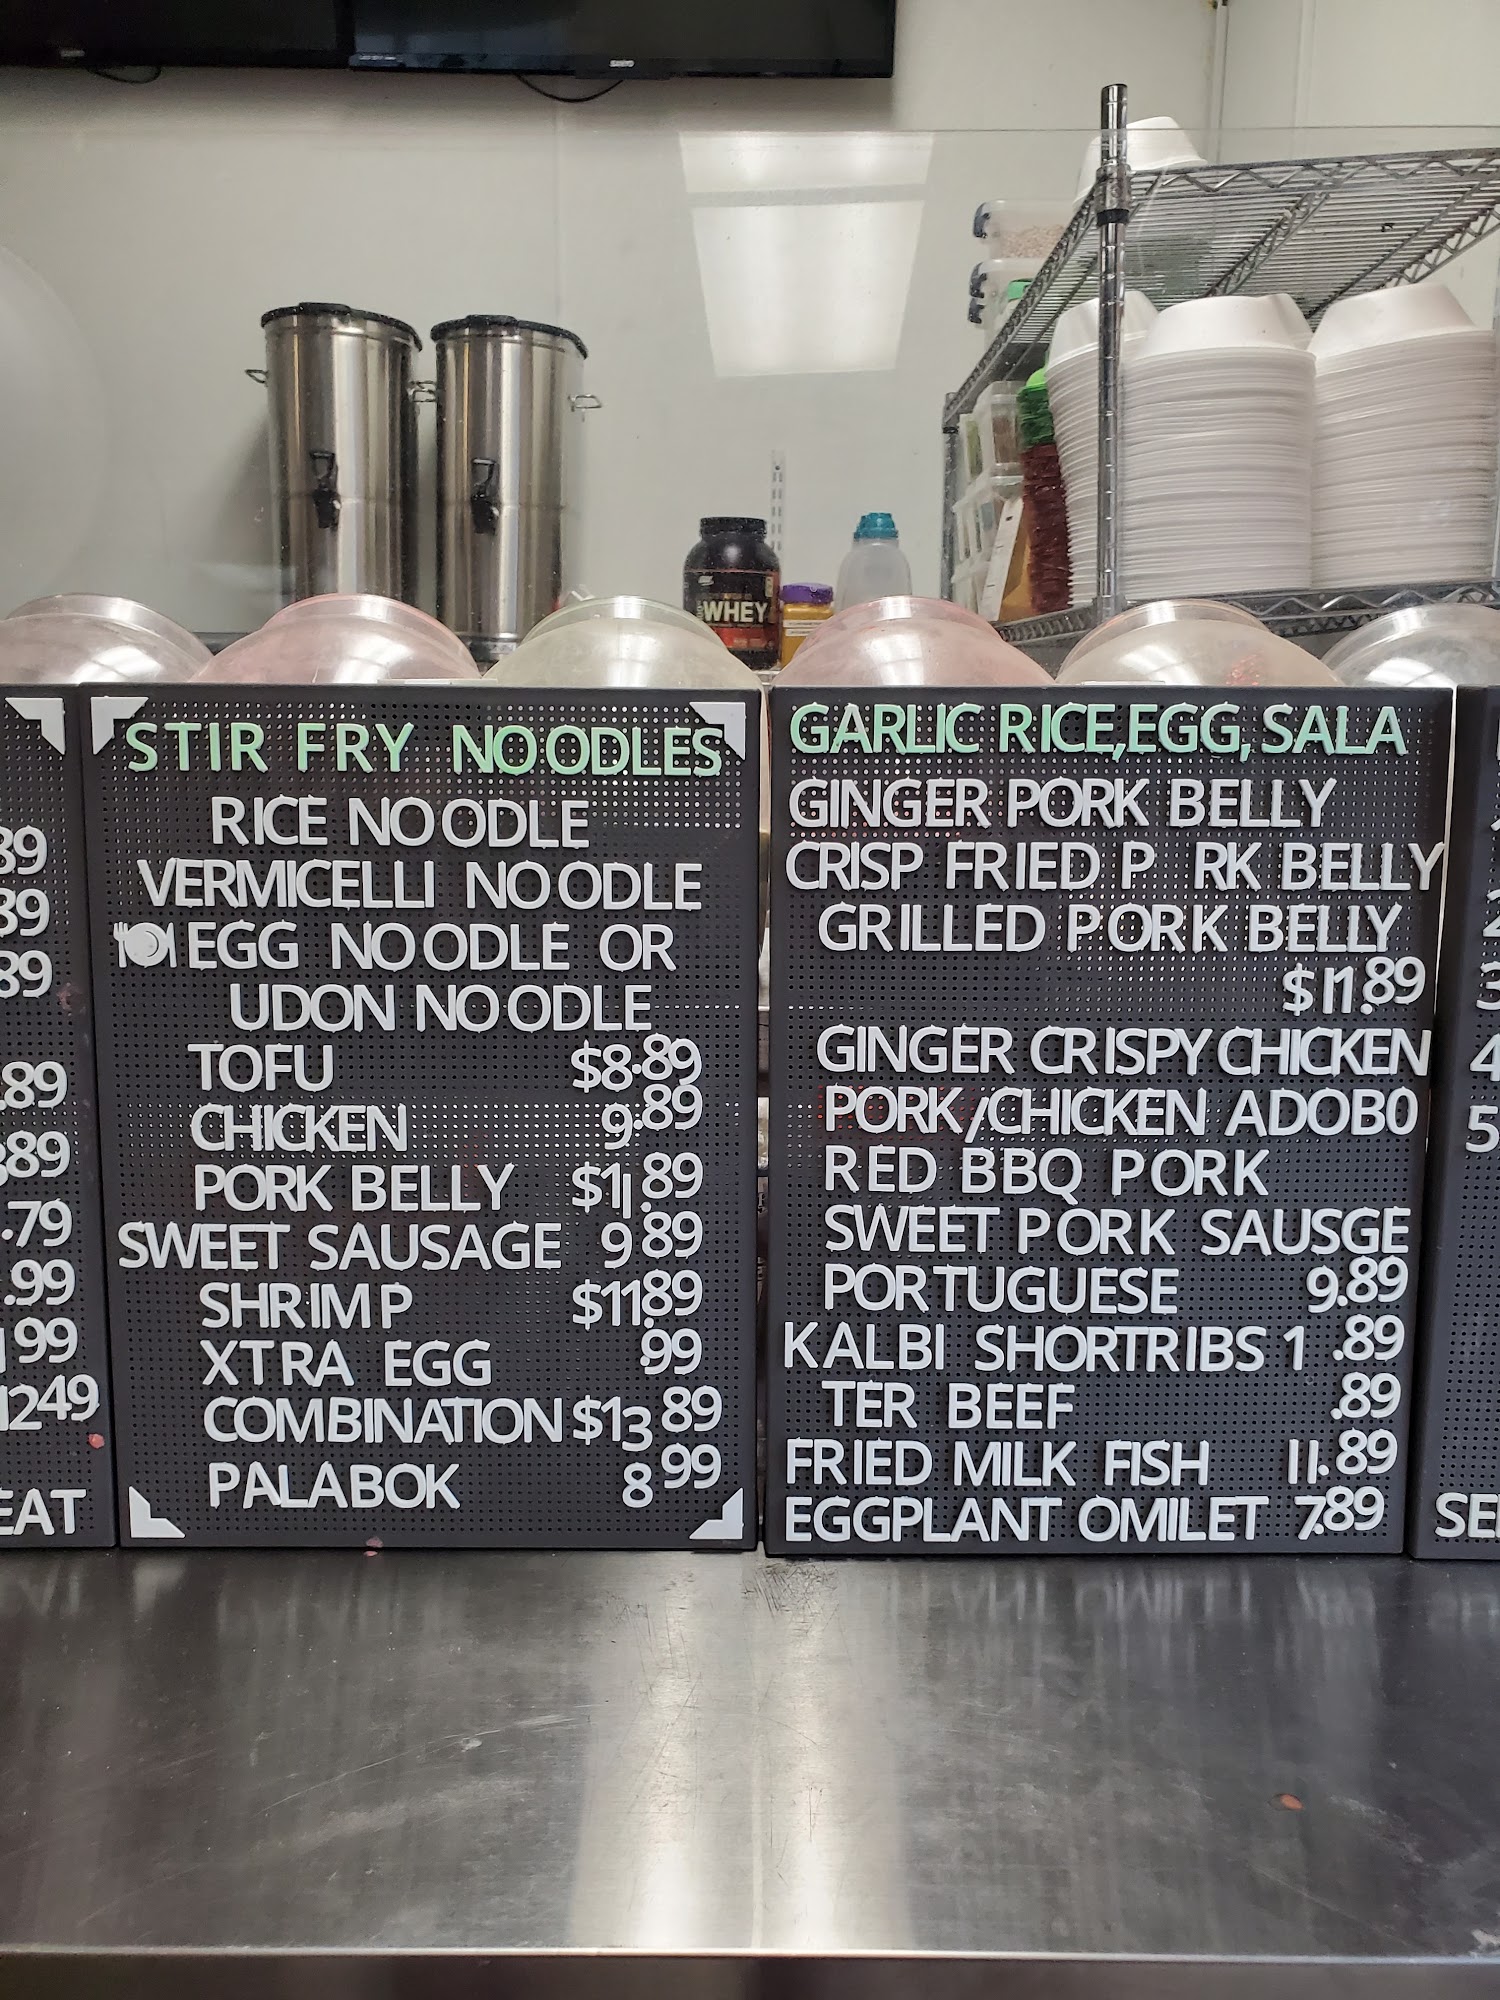 SANYO
WHEY
89
89
89
.89
89
.79
.99
199
1249
EAT
STIR FRY NOODLES
RICE NOODLE
VERMICELLI NOODLE
EGG NOODLE OR
UDON NOODLE
TOFU $8.89
CHICKEN 9.89
PORK BELLY $11.89
SWEET SAUSAGE 9 89
SHRIMP $11.89
XTRA EGG .99
COMBINATION $13 89
PALABOK 8 99
GARLIC RICE,EGG, SALA
GINGER PORK BELLY
CRISP FRIED P RK BELLY
GRILLED PORK BELLY
$11.89
GINGER CRISPY CHICKEN
PORK/CHICKEN ADOBO
RED BBQ PORK
SWEET PORK SAUSGE
PORTUGUESE 9.89
KALBI SHORTRIBS 1 .89
TER BEEF .89
FRIED MILK FISH 11.89
EGGPLANT OMILET 7.89
2
3
4
5
SE